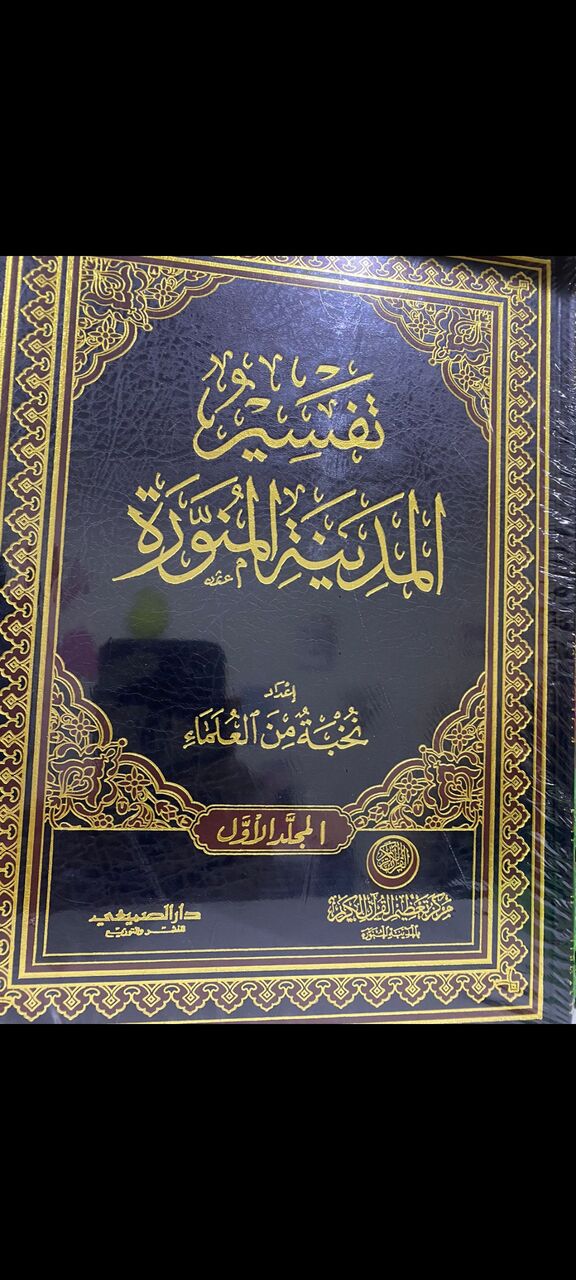 تَفْسِيرُ
المَدِينَةِ المُنَوَّرَةِ
إعداد
نُخْبَةٌ مِنَ العُلَمَاءِ
المجلّد الأوّل
مركز تعظيم القرآن الكريم
بالمدينة المنورة
دار الصميعي
للنشر والتوزيع